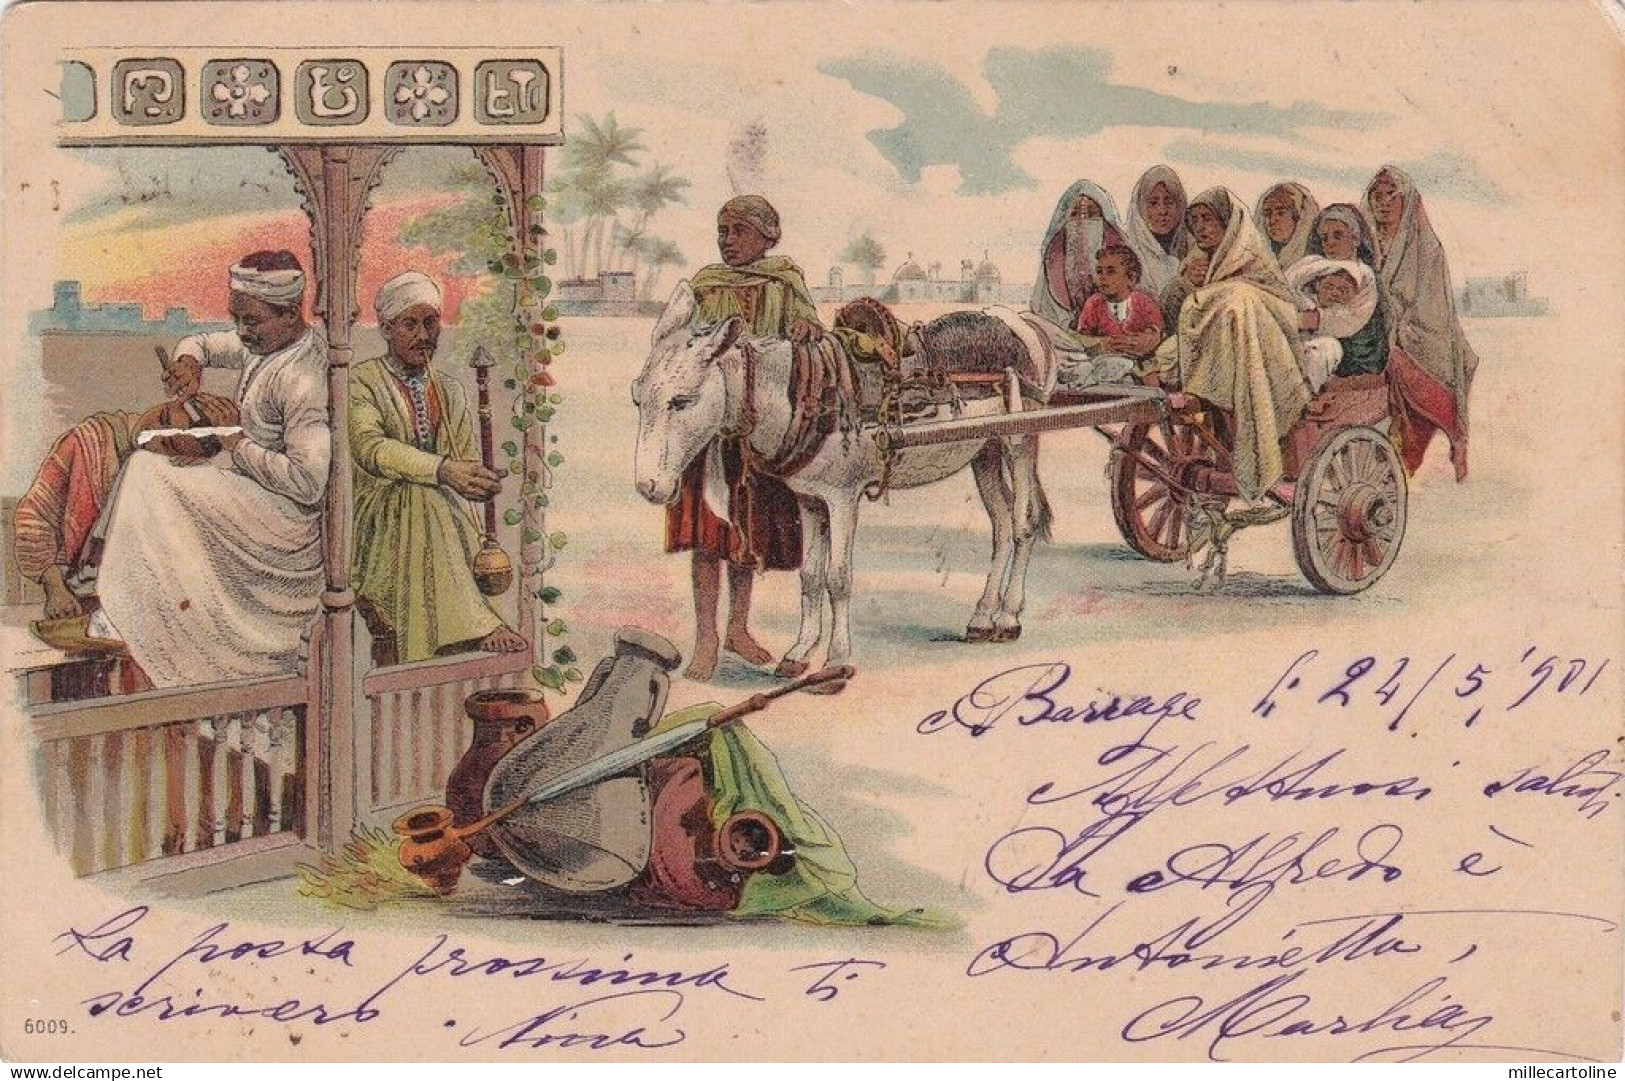 Barrage li 24/5/901
Affettuosi saluti
Da Alfredo è
Antonietta,
La posta prossima ti
scrivero. Nina
6009.
millecartoline